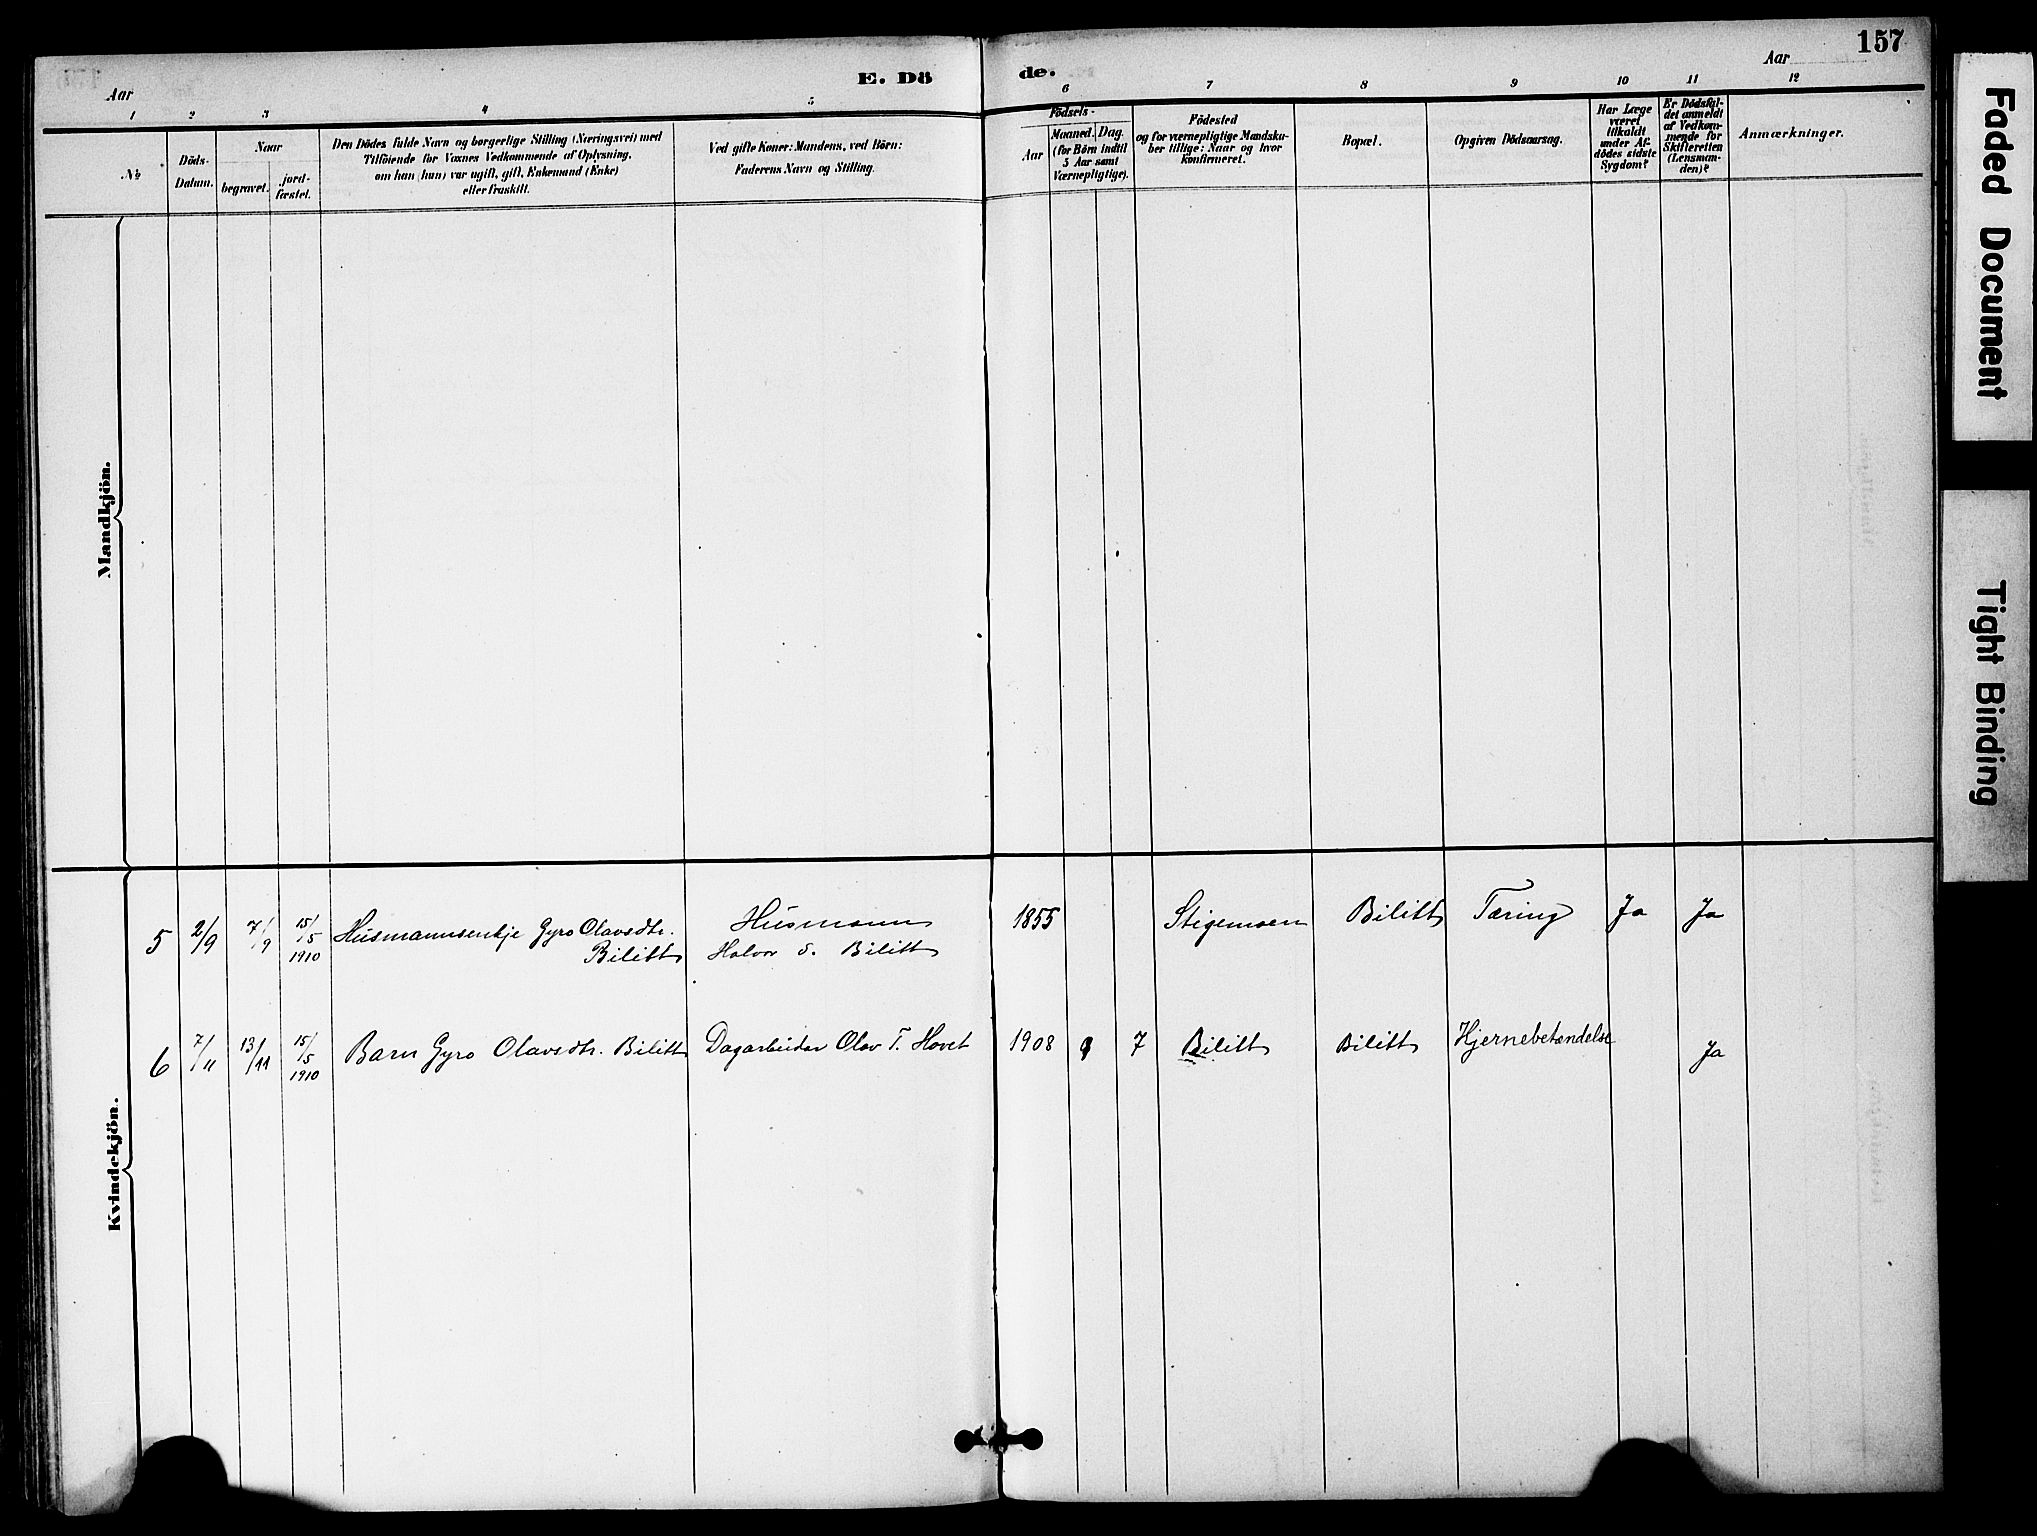 157
Aar
E. Dö
de.
Aar
1 2 3 4 5 6 7 8 9 10 11 12
№
Döds-
Datum.
Naar
begravet.
jord-
fæstet.
Den Dödes fulde Navn og borgerlige Stilling (Næringsvei) med
Tilföiende for Voxnes Vedkommende af Oplysning,
om han (hun) var ugift, gift, Enkemand (Enke)
eller fraskilt.
Ved gifte Koner: Mandens, ved Börn:
Faderens Navn og Stilling.
Födsels-
Aar
Maaned. Dag.
(for Börn indtil
5 Aar samt
Værnepligtige).
Födested
og for værnepligtige Mandsku-
ber tillige: Naar og hvor
konfirmeret.
Bopæl.
Opgiven Dödsaarsag.
Har Læge
været
tilkaldt
under Af-
dödes sidste
Sygdom?
Er Dödsfal-
det anmeldt
af Vedkom-
mende for
Skifteretten
(Lensman-
den)?
Anmærkninger.
Mandkjön.
Kvindekjön.
5 2/9 7/9 15/5 1910 Husmannsenkje Gyro Olavsdtr. Husmann 1855 Stigemoen Bilitt Tæring Ja Ja
Bilitt Halvor S. Bilitt
6 7/11 13/11 15/5 1910 Barn Gyro Olavsdtr. Bilitt Dagarbeidar Olav T. Hovet 1908 9 7 Bilitt Bilitt Hjernebetændelse Ja
Faded Document
Tight Binding